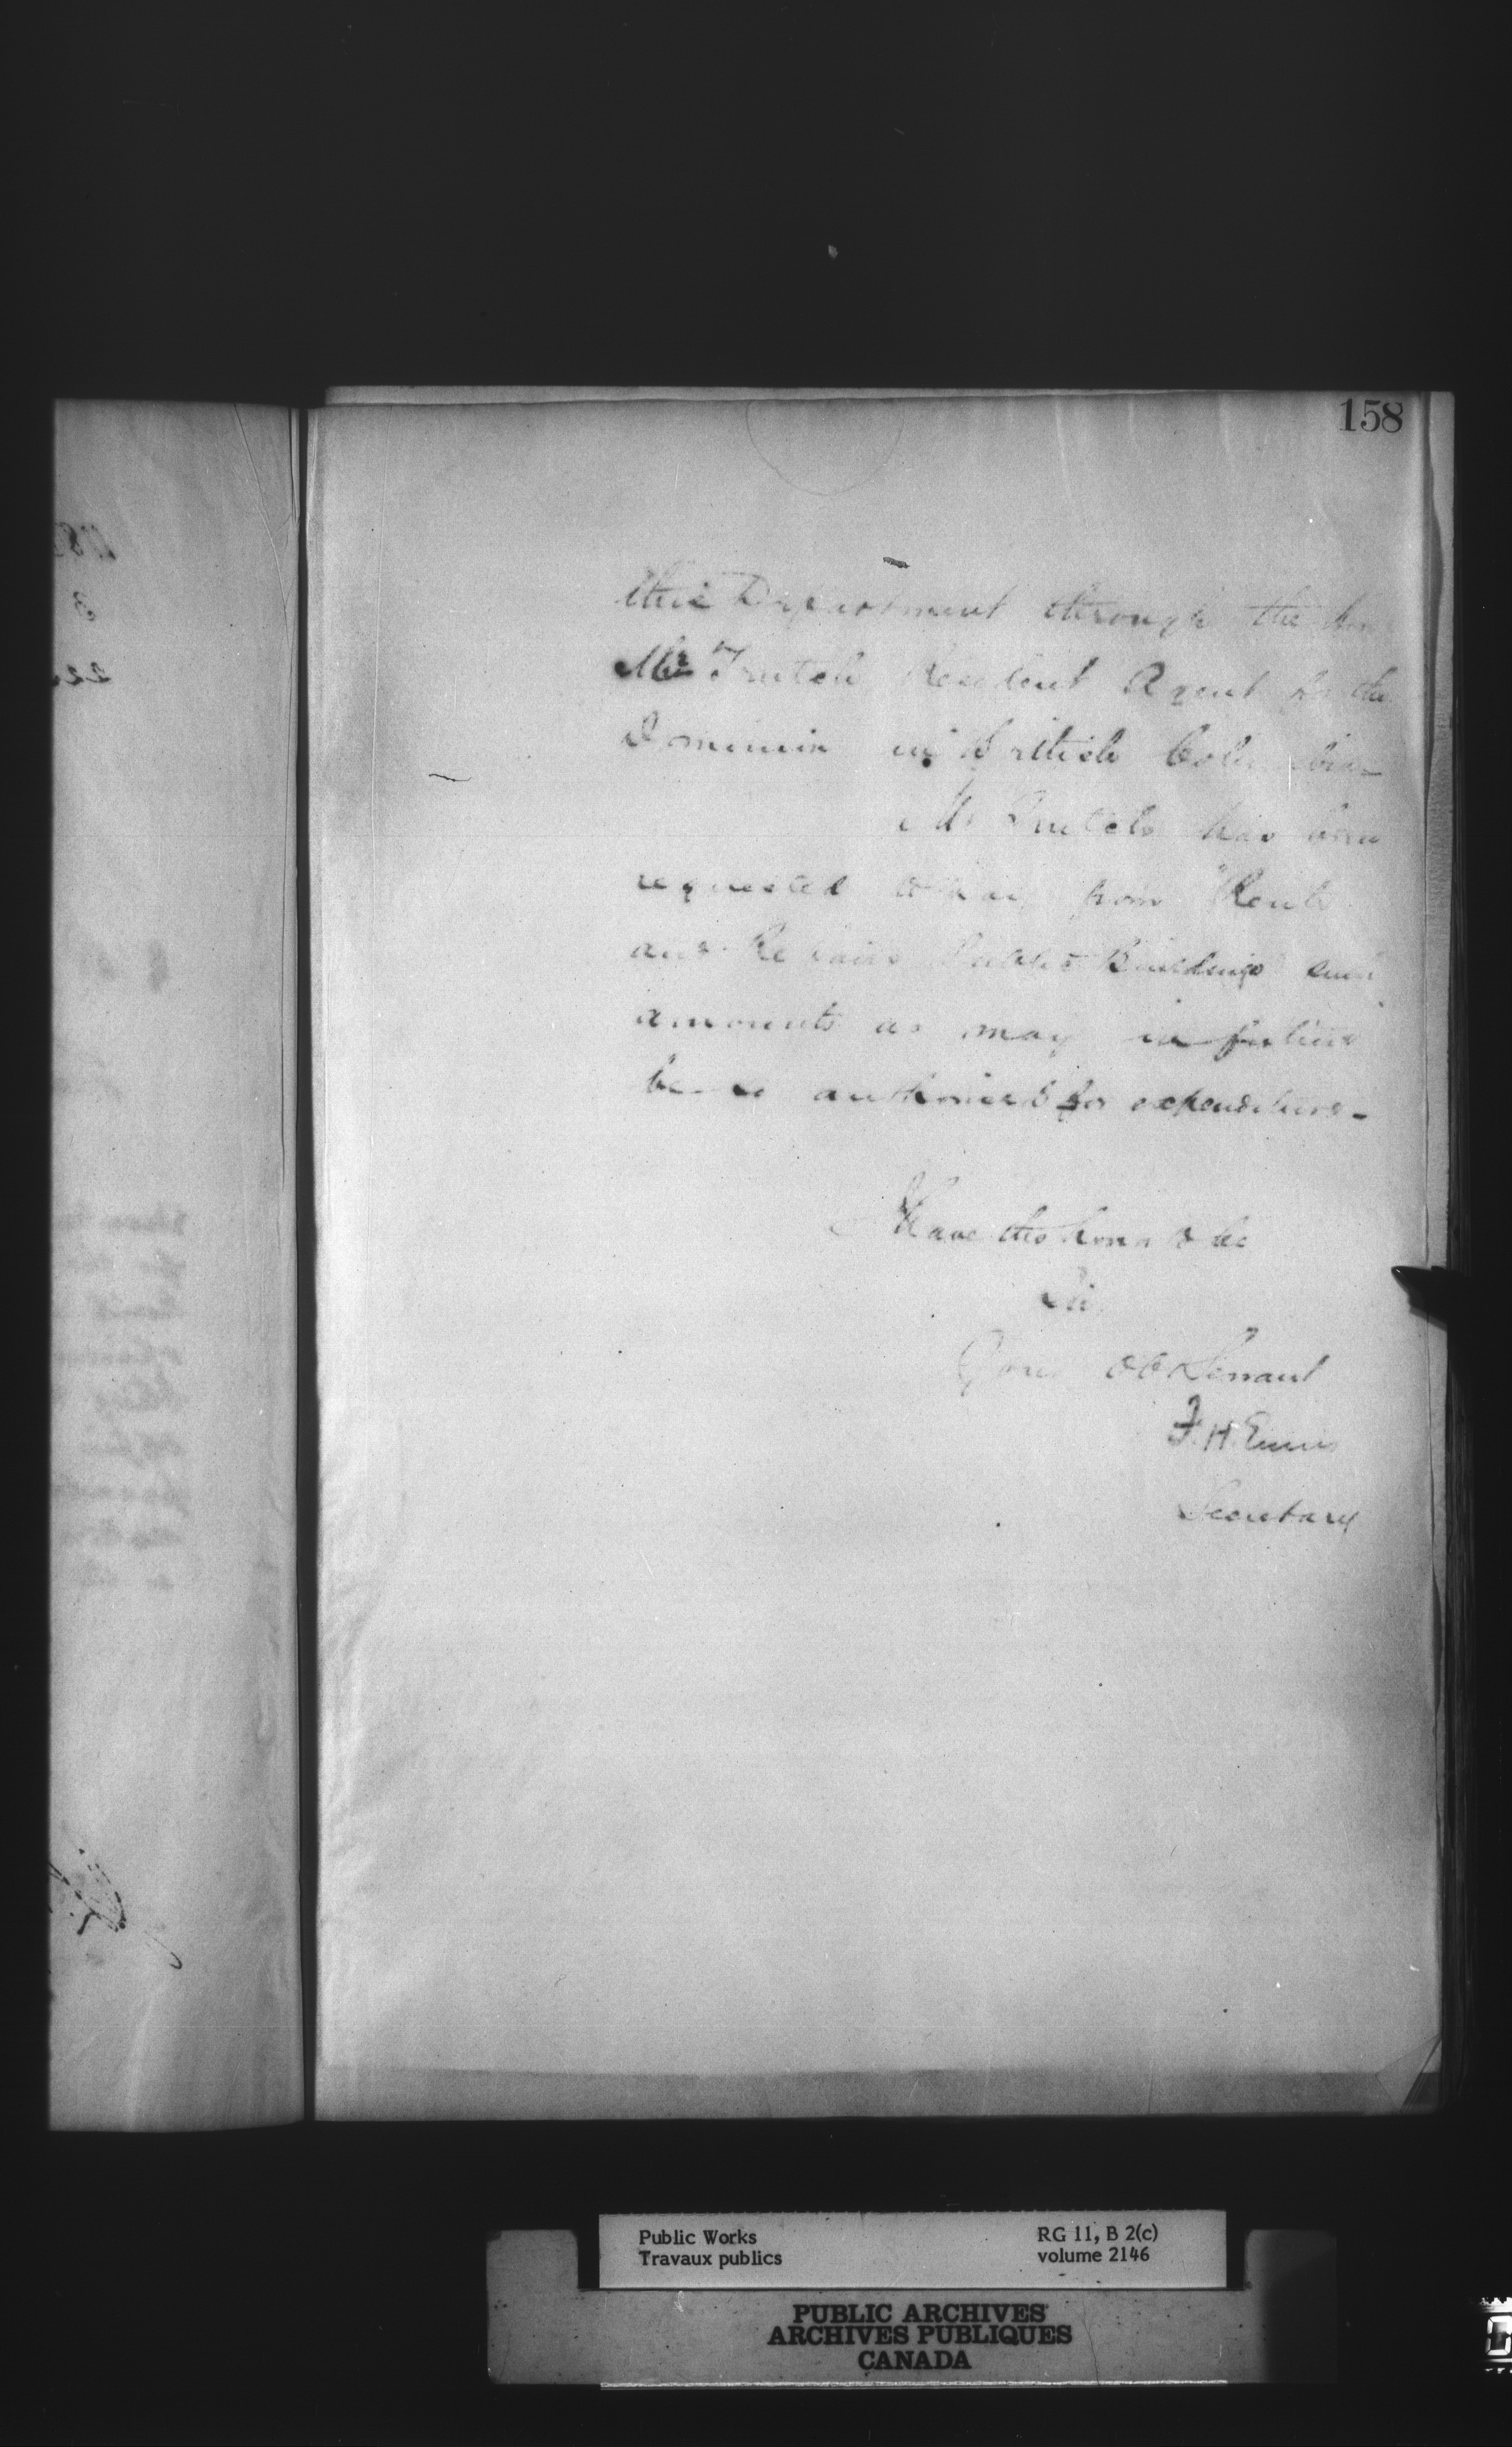 158
this Department through the Hon
Mr Trutch Resident Agent for the
Dominion in British Columbia_
Mr Trutch has been
requested to pay from "Rents
and Repairs Public Buildings" such
amounts as may in future
be so authorized for expenditure_
I have the honor to be
Sir
Your Ob Servant
F. H. Ennis
Secretary
Public Works
Travaux publics
RG 11, B 2(c)
volume 2146
PUBLIC ARCHIVES
ARCHIVES PUBLIQUES
CANADA